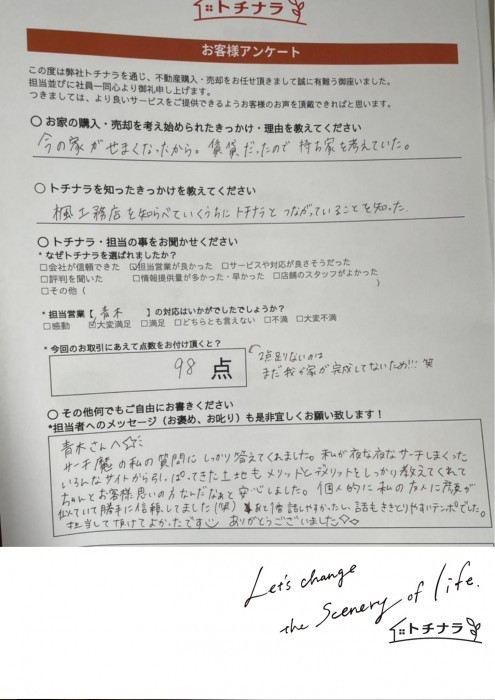 トチナラ
お客様アンケート
この度は弊社トチナラを通じ、不動産購入・売却をお任せ頂きまして誠に有難う御座いました。
担当並びに社員一同心より御礼申し上げます。
つきましては、より良いサービスをご提供できるようお客様のお声を頂戴できればと思います。
〇 お家の購入・売却を考え始められたきっかけ・理由を教えてください
今の家がせまくなったから。賃貸だったので持ち家を考えていた。
〇 トチナラを知ったきっかけを教えてください
楓工務店を知らべていくうちにトチナラとつながっていることを知った.
〇 トチナラ・担当の事をお聞かせください
* なぜトチナラを選ばれましたか?
□会社が信頼できた ☑担当営業が良かった □サービスや対応が良さそうだった
□評判を聞いた □情報提供量が多かった・早かった □店舗のスタッフがよかった
□その他 ( )
* 担当営業【 青木 】の対応はいかがでしたでしょうか?
□感動 ☑大変満足 □満足 □どちらとも言えない □不満 □大変不満
* 今回のお取引にあえて点数をお付け頂くと?
98 点
2点足りないのは
まだ我が家が完成してないため!!! 笑
〇 その他何でもご自由にお書きください
*担当者へのメッセージ(お褒め、お叱り)も是非宜しくお願い致します!
青木さんへ
サーチ魔の私の質問にしっかり答えてくれました。私が夜な夜なサーチしまくった
いろんなサイトから引っぱってきた土地もメリットとデメリットをしっかり教えてくれて
ちゃんとお客様思いの方なんだなぁと安心しました。個人的に私の友人に雰囲気が
似ていて勝手に信頼してました(笑) あと1番話しやすかったし、話もききとりやすいテンポでした。
担当して頂けてよかったです ありがとうございました♡
Let's change
the scenery of life.
トチナラ